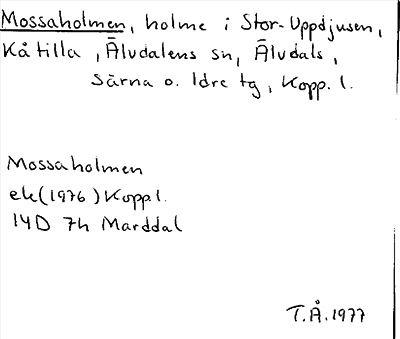 Mossaholmen, holme i Stor-Uppdjusen,
Kåtilla, Älvdalens sn, Älvdals,
Särna o. Idre tg, Kopp. l.
Mossaholmen
ek(1976) Kopp l.
14D 7h Marddal
T.Å. 1977